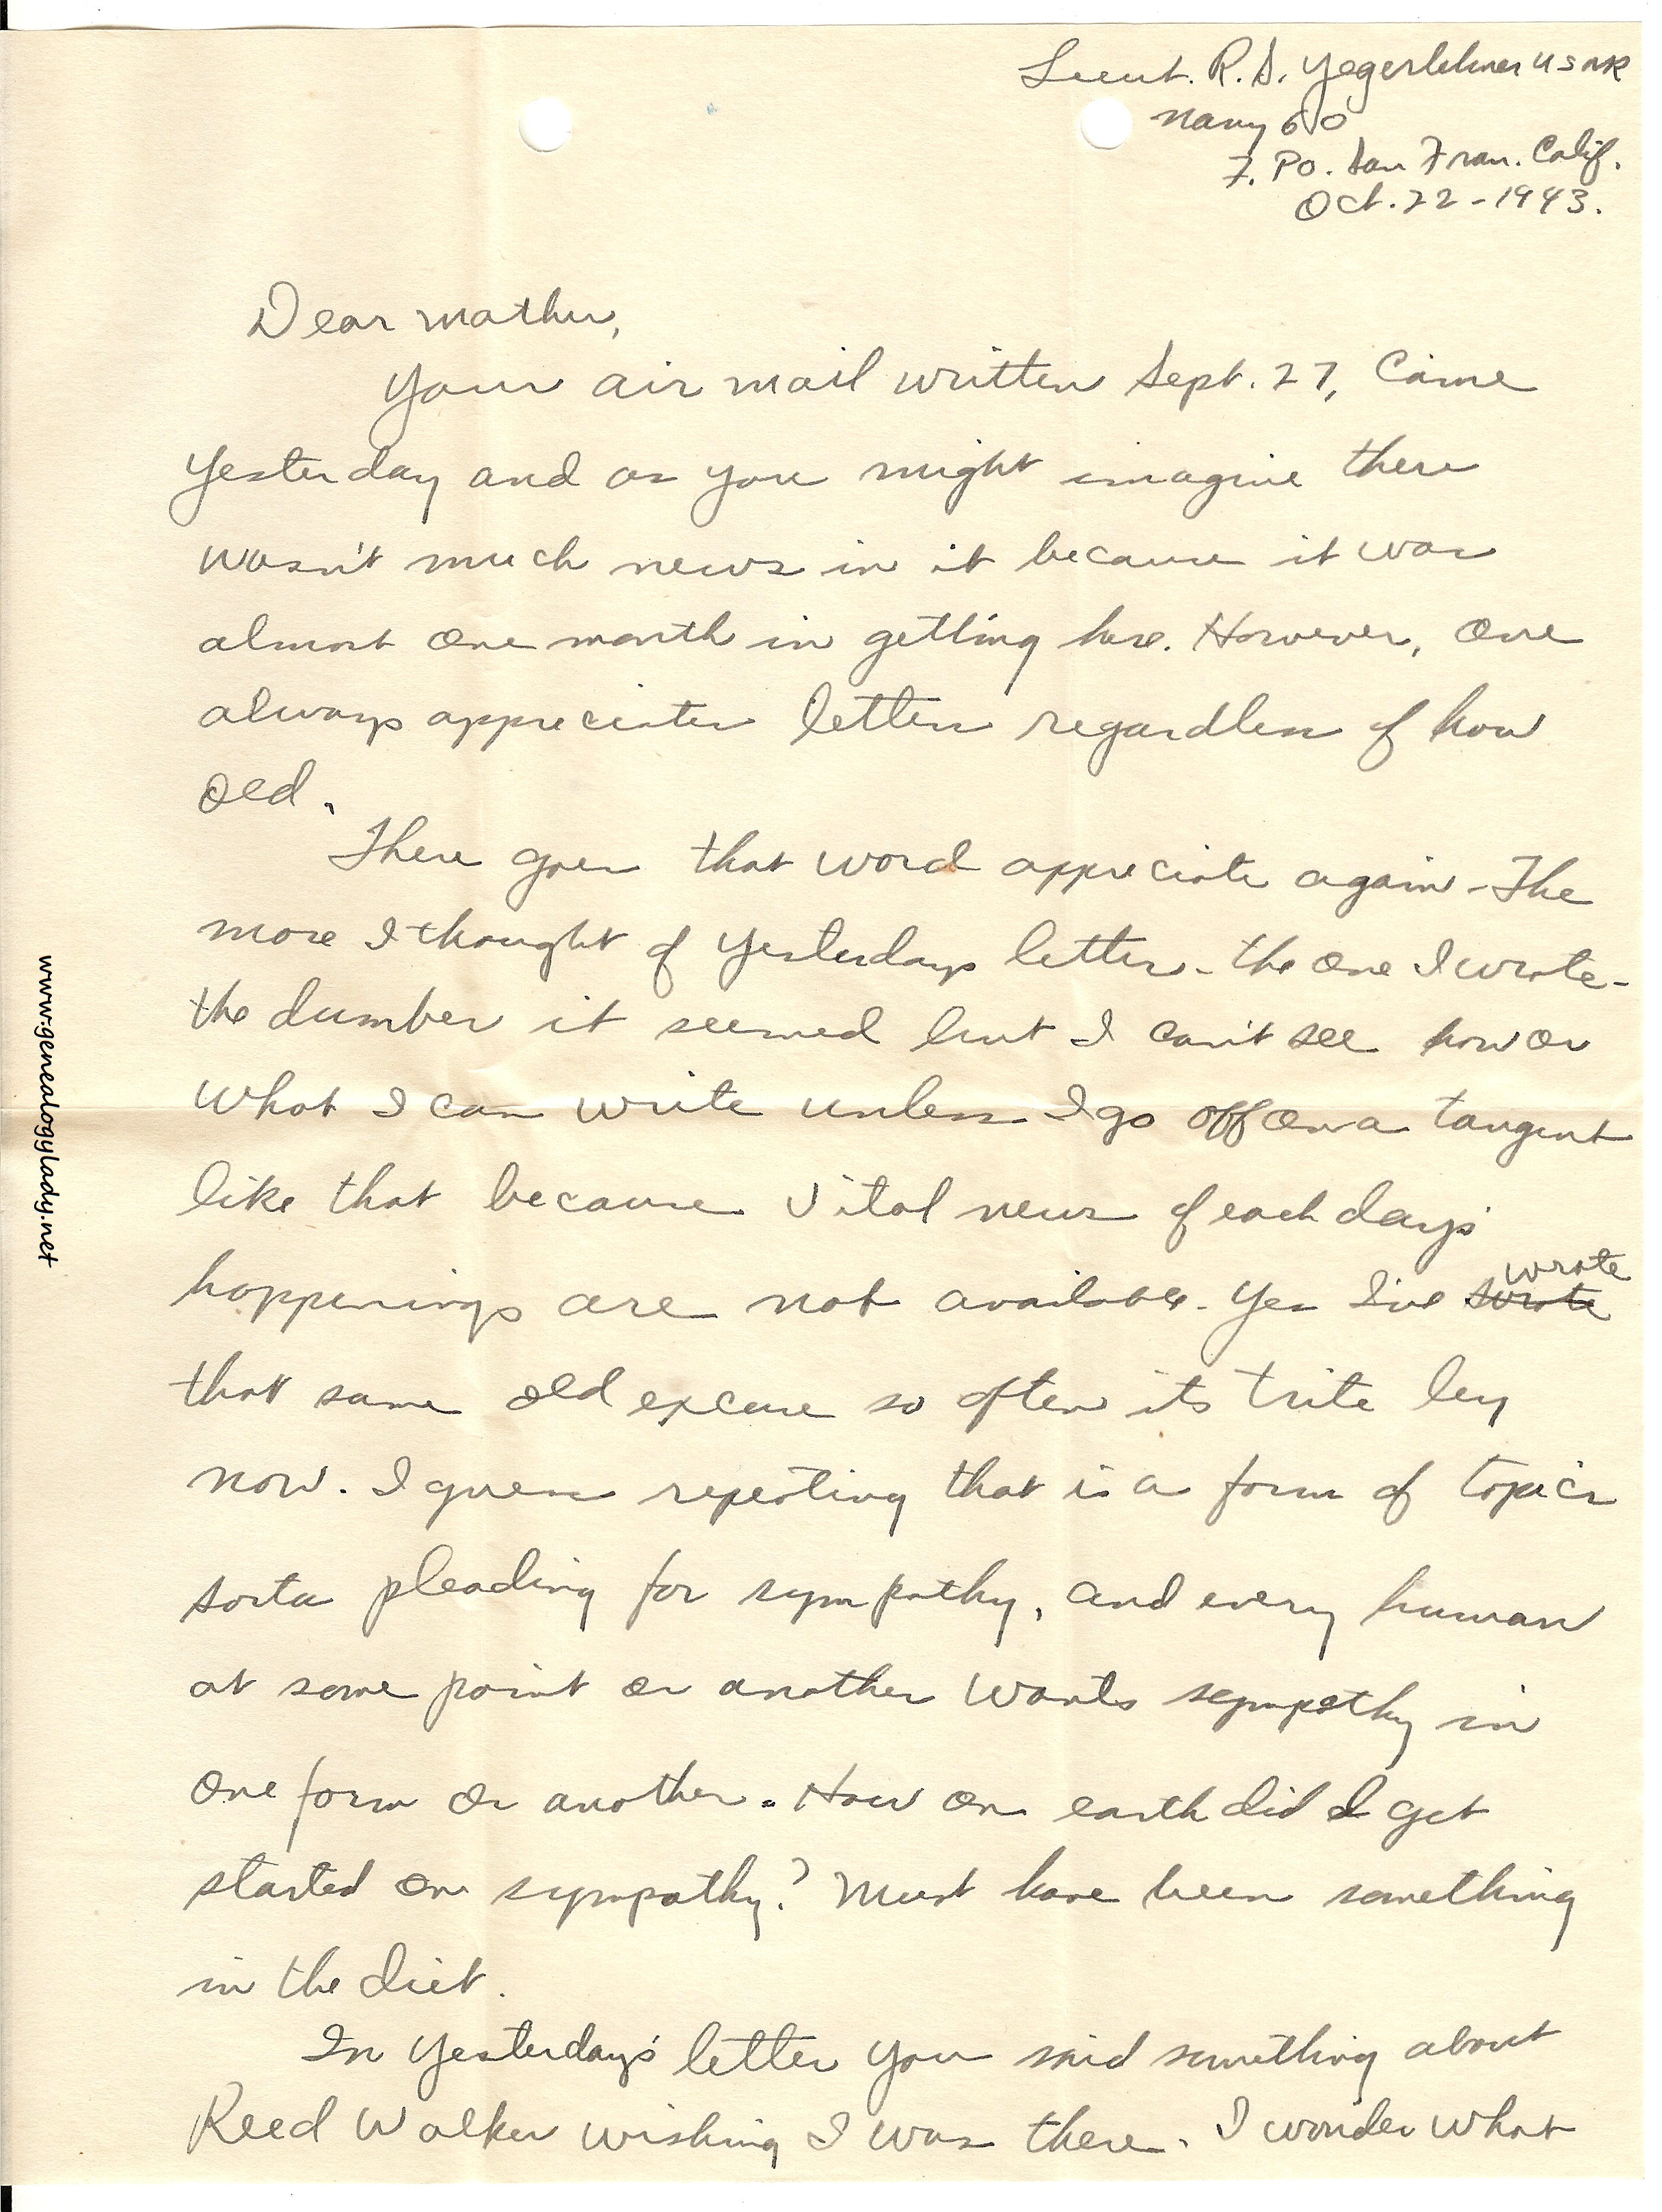 Lieut. R. D. Yegerlehner USNR
Navy 60
F. PO. San Fran. Calif.
Oct. 22 - 1943.
Dear mother,
Your air mail written Sept. 27, came
yesterday and as you might imagine there
wasn't much news in it because it was
almost one month in getting here. However, one
always appreciates letters regardless of how
old.
There goes that word appreciate again - The
more I thought of yesterdays letter - the one I wrote -
the dumber it seemed but I can't see how or
what I can write unless I go off on a tangent
like that because vital news of each days'
happenings are not available. Yes I've wrote
that same old excuse so often its trite by
now. I guess repeating that is a form of topics
sorta pleading for sympathy, and every human
at some point or another wants sympathy in
one form or another. How on earth did I get
started on sympathy? Must have been something
in the diet.
In yesterday's letter you said something about
Reed Walker wishing I was there. I wonder what
www.genealogylady.net